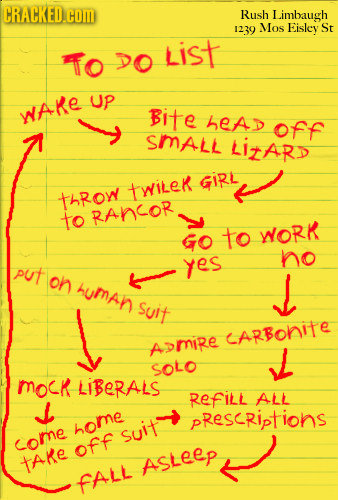 CRACKED.com
Rush Limbaugh
1239 Mos Eisley St
TO DO LisT
WAKe UP
Bite heAD OFF
SMALL LiZARD
tHROW tWiLeK GiRL
tO RAhCOR
GO tO WORK
yes
no
put on human suit
ADMiRE CARBOhite
SOLO
mOCK LiBERALS
RefiLL ALL
pRESCRiptiohs
come home
tAKe OFF Suit
fALL ASLeep